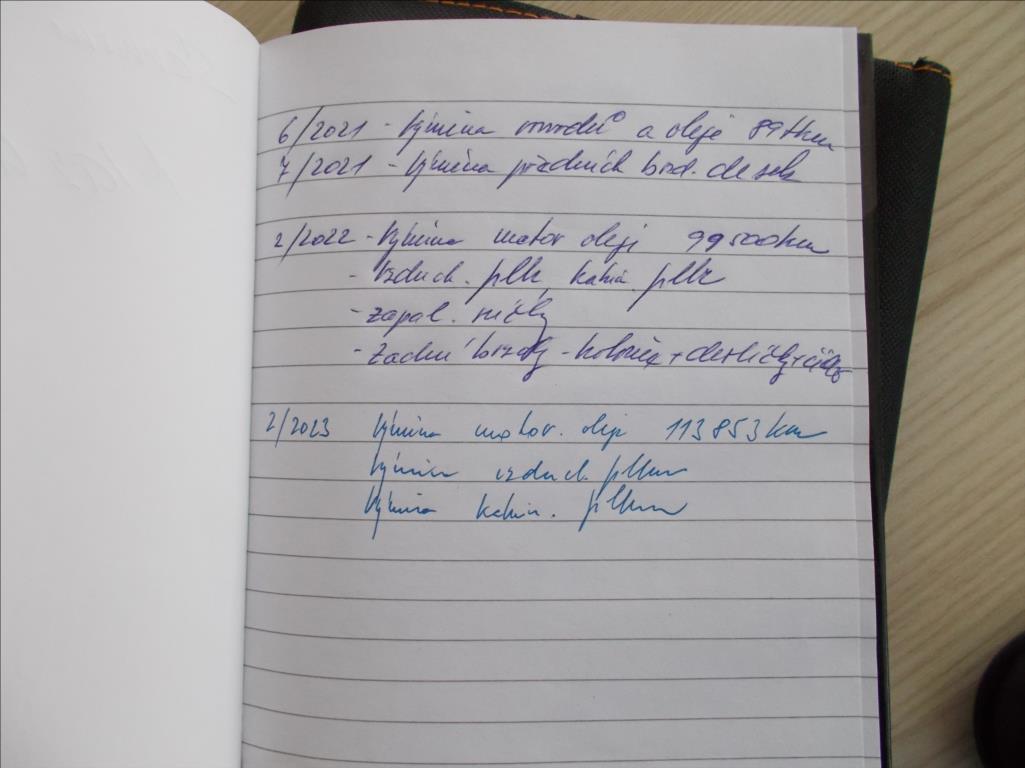 6/2021 - Výměna rozvodů a oleje 89tkm
7/2021 - Výměna předních brzd. desek
2/2022 - Výměna motor oleje 99500km
- Vzduch. filtr, kabin. filtr
- zapal. svíčky
- Zadní brzdy - kotouče + destičky +
2/2023 Výměna motor. oleje 113853km
Výměna vzduch. filtru
Výměna kabin. filtru